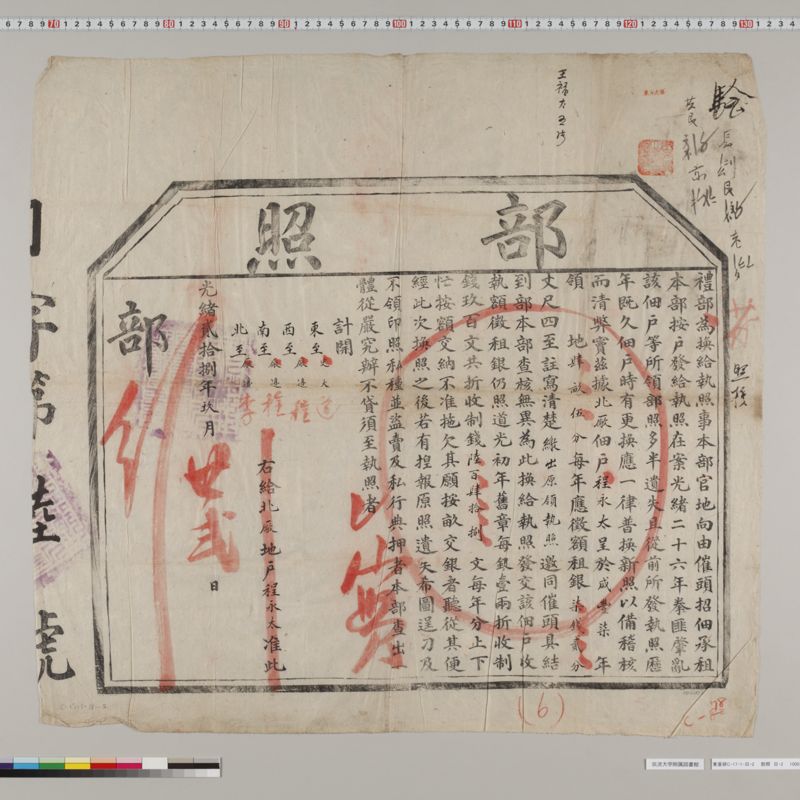 部照
禮部為換給執照事本部官地向由催頭招佃承租
本部按戶發給執照在案光緒二十六年拳匪肇亂
該佃戶等所領部照多半遺失且從前所發執照歷
年既久佃戶時有更換應一律普換新照以備稽核
而清弊竇茲據北廠佃戶程永太呈於咸豐柒年
領 地肆畝伍分每年應徵額租銀柒錢貳分
丈尺四至註寫清楚繳出原領執照邀同催頭具結
到部本部查核無異為此換給執照發交該佃戶收
執額徵租銀仍照道光初年舊章每銀壹兩折收制
錢玖百文共折收制錢陸百肆拾捌文每年分上下
忙按額交納不准拖欠其願按畝交銀者聽從其便
經此次換照之後若有捏報原照遺失希圖逞刁及
不領印照私種並盜賣及私行典押者本部查出一
體從嚴究辦不貸須至執照者
計開
東至
西至
南至
北至
右給北廠地戶程永太准此
光緒貳拾捌年玖月 廿貳 日
部
字第 陸 號
(6)